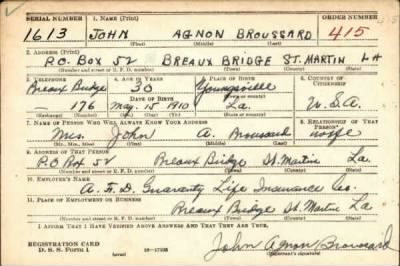 SERIAL NUMBER 1. NAME (Print) ORDER NUMBER
1613 JOHN AGNON BROUSSARD 415
(First) (Middle) (Last)
2. ADDRESS (Print)
P.O. BOX 52 BREAUX BRIDGE ST. MARTIN LA
(Number and street or R. F. D. number) (Town) (County) (State)
3. TELEPHONE 4. AGE IN YEARS 5. PLACE OF BIRTH 6. COUNTRY OF CITIZENSHIP
Breaux Bridge 30 Youngsville
DATE OF BIRTH (Town or county)
— 176 May. 15 1910 La. U.S.A.
(Exchange) (Number) (Mo.) (Day) (Yr.) (State or country)
7. NAME OF PERSON WHO WILL ALWAYS KNOW YOUR ADDRESS 8. RELATIONSHIP OF THAT PERSON
Mrs. John A. Broussard wife
(Mr., Mrs., Miss) (First) (Middle) (Last)
9. ADDRESS OF THAT PERSON
P.O Box 52 Breaux Bridge St. Martin La.
(Number and street or R. F. D. number) (Town) (County) (State)
10. EMPLOYER'S NAME
Guaranty Life Insurance Co.
11. PLACE OF EMPLOYMENT OR BUSINESS
Breaux Bridge St. Martin La
(Number and street or R. F. D. number) (Town) (County) (State)
I AFFIRM THAT I HAVE VERIFIED ABOVE ANSWERS AND THAT THEY ARE TRUE.
REGISTRATION CARD
D. S. S. FORM 1 (over) 16—17105 John Agnon Broussard
(Registrant's signature)